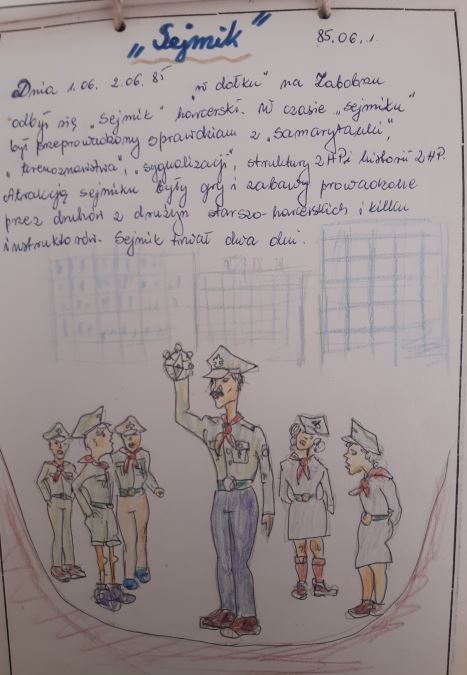 „Sejmik”
85.06.1.
Dnia 1.06. 2.06.85 "w dołku" na Zabobrzu
odbył się „Sejmik” harcerski. W czasie „sejmiku”
był przeprowadzony sprawdzian z „samarytanki”,
„terenoznawstwa”, „sygnalizacji”, struktury ZHP i historii ZHP.
Atrakcją sejmiku były gry i zabawy prowadzone
przez druhów z drużyn starszo-harcerskich i kilku
instruktorów. Sejmik trwał dwa dni.